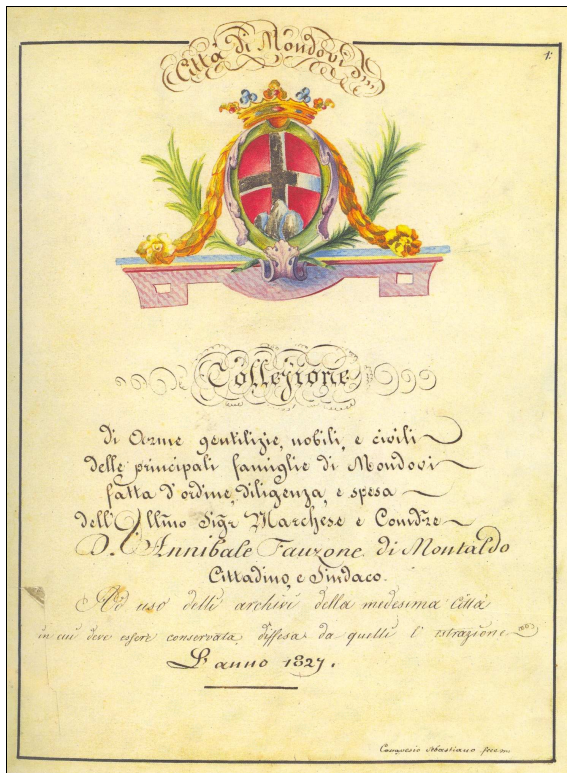 Città di Mondovì
1:
Collezione
di Arme gentilizie, nobili, e civili
delle principali famiglie di Mondovì
fatta d'ordine, diligenza, e spesa
dell'Illmo Sigr Marchese e Comdre
D. Annibale Fauzone di Montaldo
Cittadino, e Sindaco.
Ad uso delli archivi della medesima Città
in cui deve essere conservata, diffesa da quelli l'estrazione
L'anno 1827.
Sebastiano fece